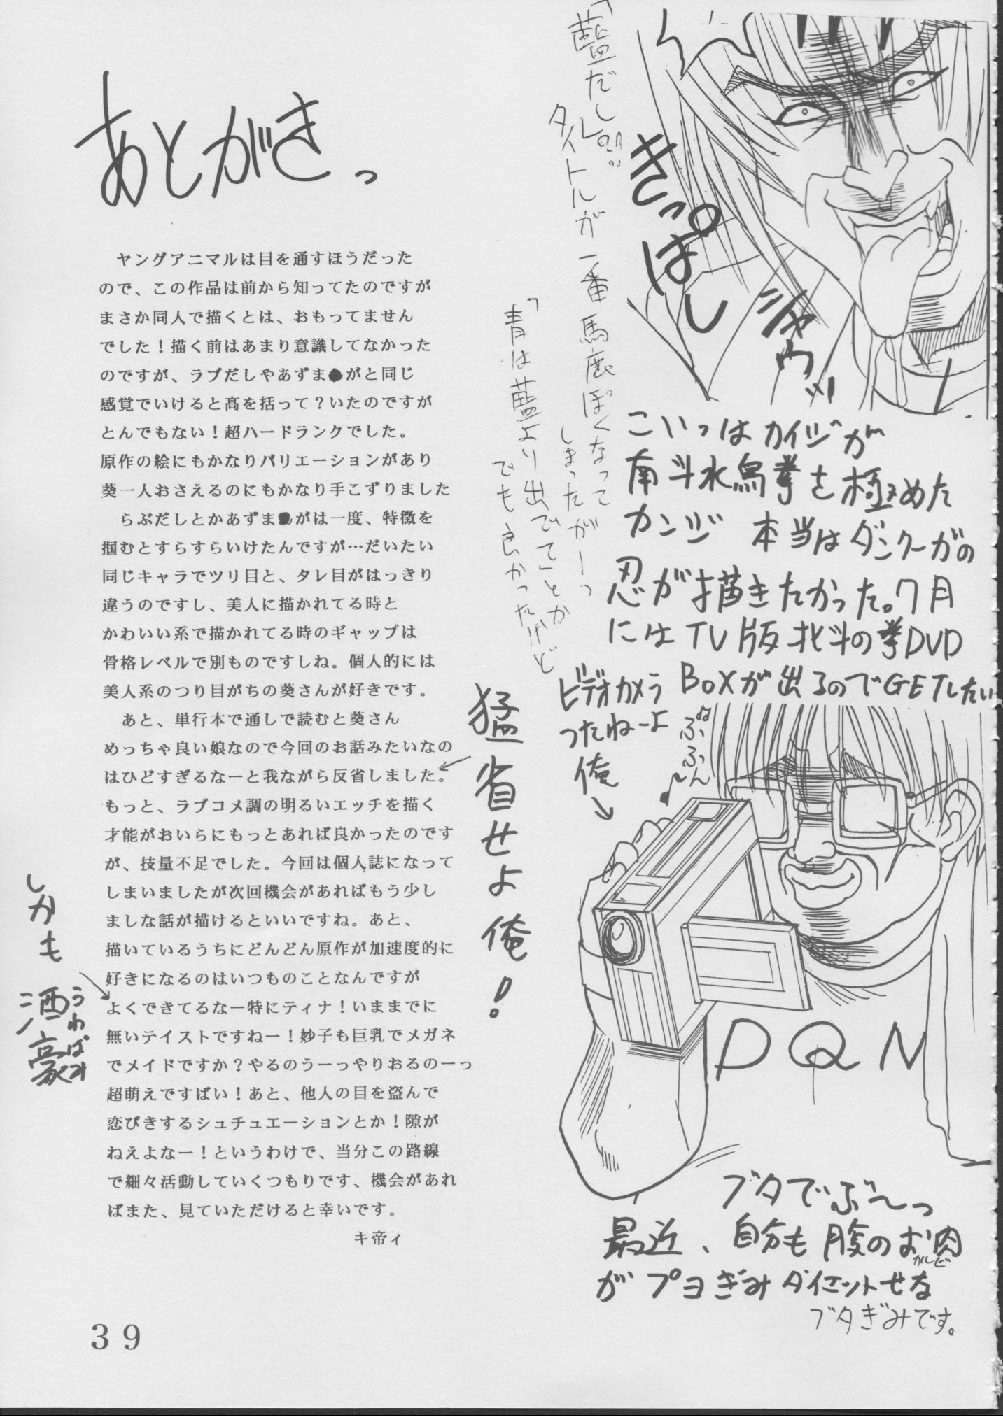 あとがきっ
ヤングアニマルは目を通すほうだった
ので、この作品は前から知ってたのですが
まさか同人で描くとは、おもってません
でした！描く前はあまり意識してなかった
のですが、ラブだしやあずま●がと同じ
感覚でいけると高を括って？いたのですが
とんでもない！超ハードランクでした。
原作の絵にもかなりバリエーションがあり
葵一人おさえるのにもかなり手こずりました
らぶだしとかあずま●がは一度、特徴を
掴むとすらすらいけたんですが…だいたい
同じキャラでツリ目と、タレ目がはっきり
違うのですし、美人に描かれてる時と
かわいい系で描かれてる時のギャップは
骨格レベルで別ものですしね。個人的には
美人系のつり目がちの葵さんが好きです。
あと、単行本で通しで読むと葵さん
めっちゃ良い娘なので今回のお話みたいなの
はひどすぎるなーと我ながら反省しました。
もっと、ラブコメ調の明るいエッチを描く
才能がおいらにもっとあれば良かったのです
が、技量不足でした。今回は個人誌になって
しまいましたが次回機会があればもう少し
ましな話が描けるといいですね。あと、
描いているうちにどんどん原作が加速度的に
好きになるのはいつものことなんですが
よくできてるなー特にティナ！いままでに
無いテイストですねー！妙子も巨乳でメガネ
でメイドですか？やるのうーっやりおるのーっ
超萌えですばい！あと、他人の目を盗んで
恋びきするシュチュエーションとか！隙が
ねえよなー！というわけで、当分この路線
で細々活動していくつもりです、機会があれ
ばまた、見ていただけると幸いです。
キ帝ィ
しかも
酒豪
うわばみ
猛省せよ俺！
「藍だし」
タイトルが一番馬鹿ぽくなって
しまったがーっ
「青は藍より出でて」とか
でも良かったけど
きっぱし
シャウッ
こいつはカイジが
南斗水鳥拳を極めた
カンジ 本当はダンクーガの
忍が描きたかった。7月
にはTV版北斗の拳DVD
BOXが出るのでGETしたい
ビデオカメラ
うつたねーよ
俺
ぶふふん
DQN
ブタでぶ〜っ
最近、自分も腹のお肉
がプヨぎみダイエットせな
ブタぎみです。
39